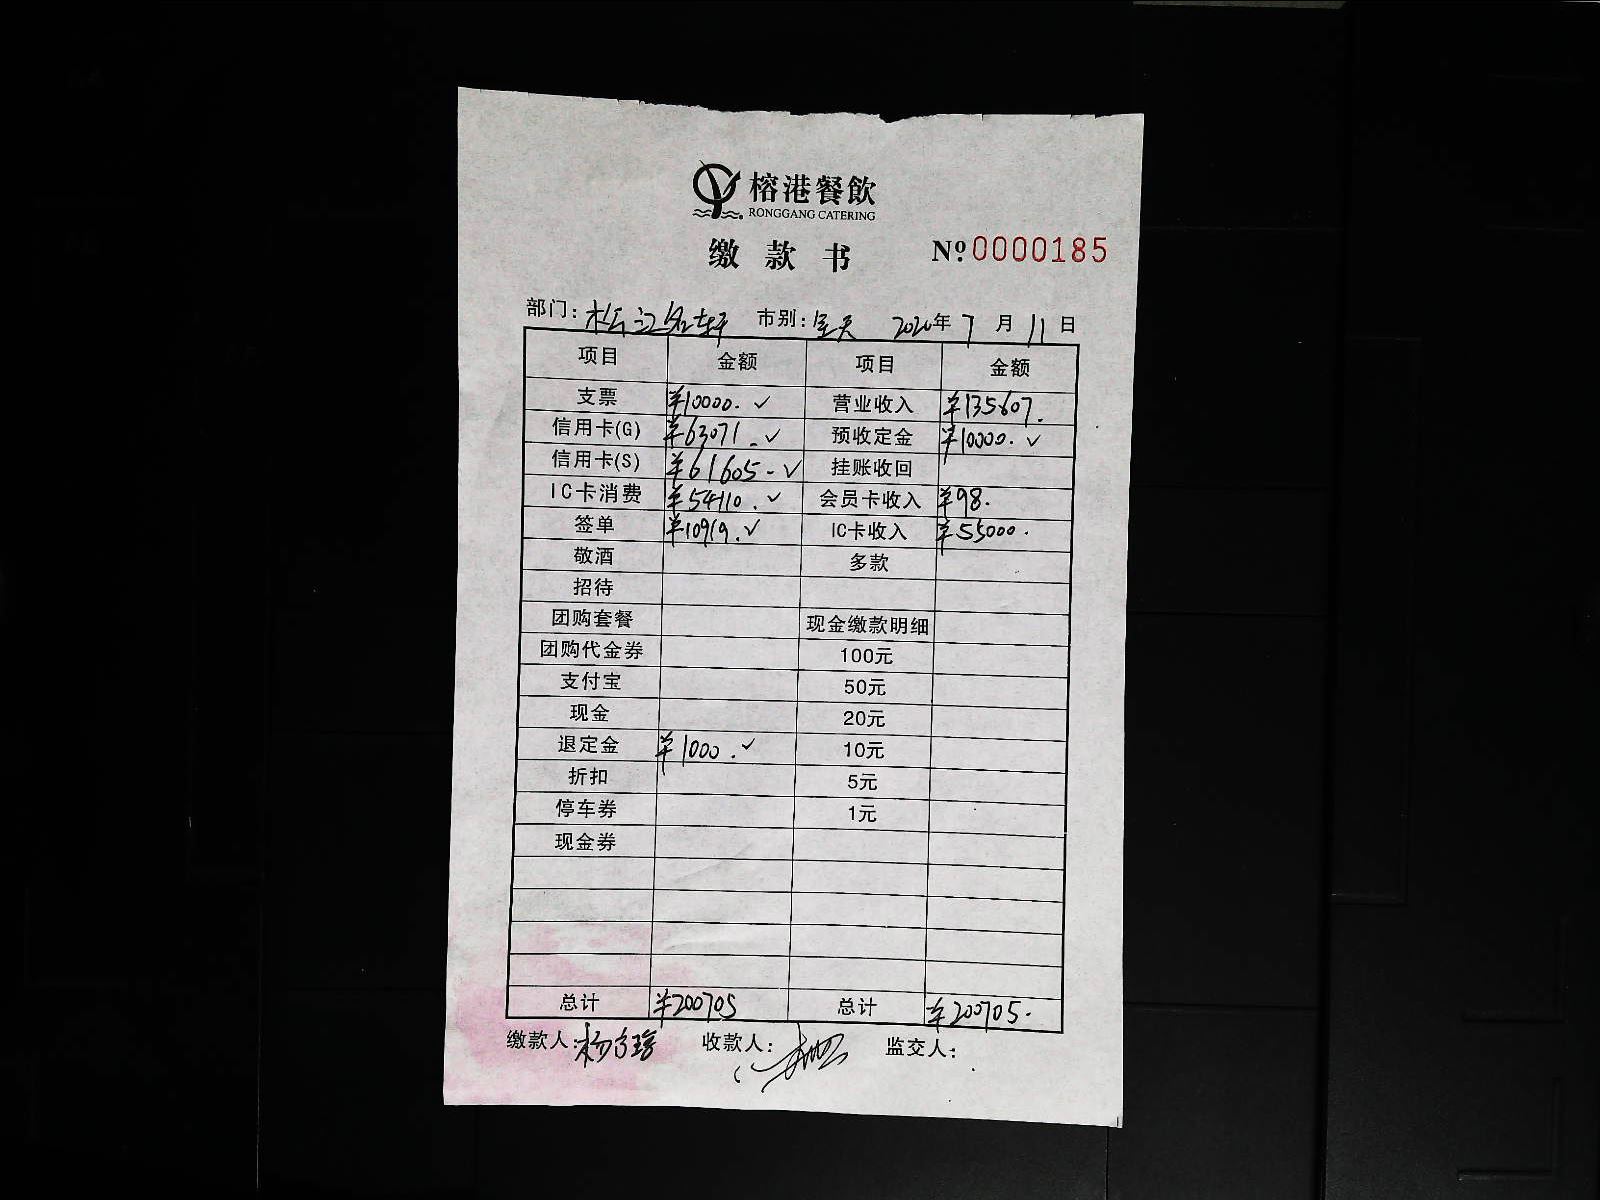 榕港餐飲
RONGGANG CATERING
缴款书 Nº 0000185
部门: 松江名轩 市别: 全天 2020年7月11日
项目 金额 项目 金额
支票 ¥10000. ✓ 营业收入 ¥135607.
信用卡(G) ¥63071. ✓ 预收定金 ¥10000. ✓
信用卡(S) ¥61605- ✓ 挂账收回
IC卡消费 ¥54110. ✓ 会员卡收入 ¥98.
签单 ¥10919. ✓ IC卡收入 ¥55000.
敬酒 多款
招待
团购套餐 现金缴款明细
团购代金券 100元
支付宝 50元
现金 20元
退定金 ¥1000. ✓ 10元
折扣 5元
停车券 1元
现金券
总计 ¥200705 总计 ¥200705.
缴款人: 收款人: 监交人: